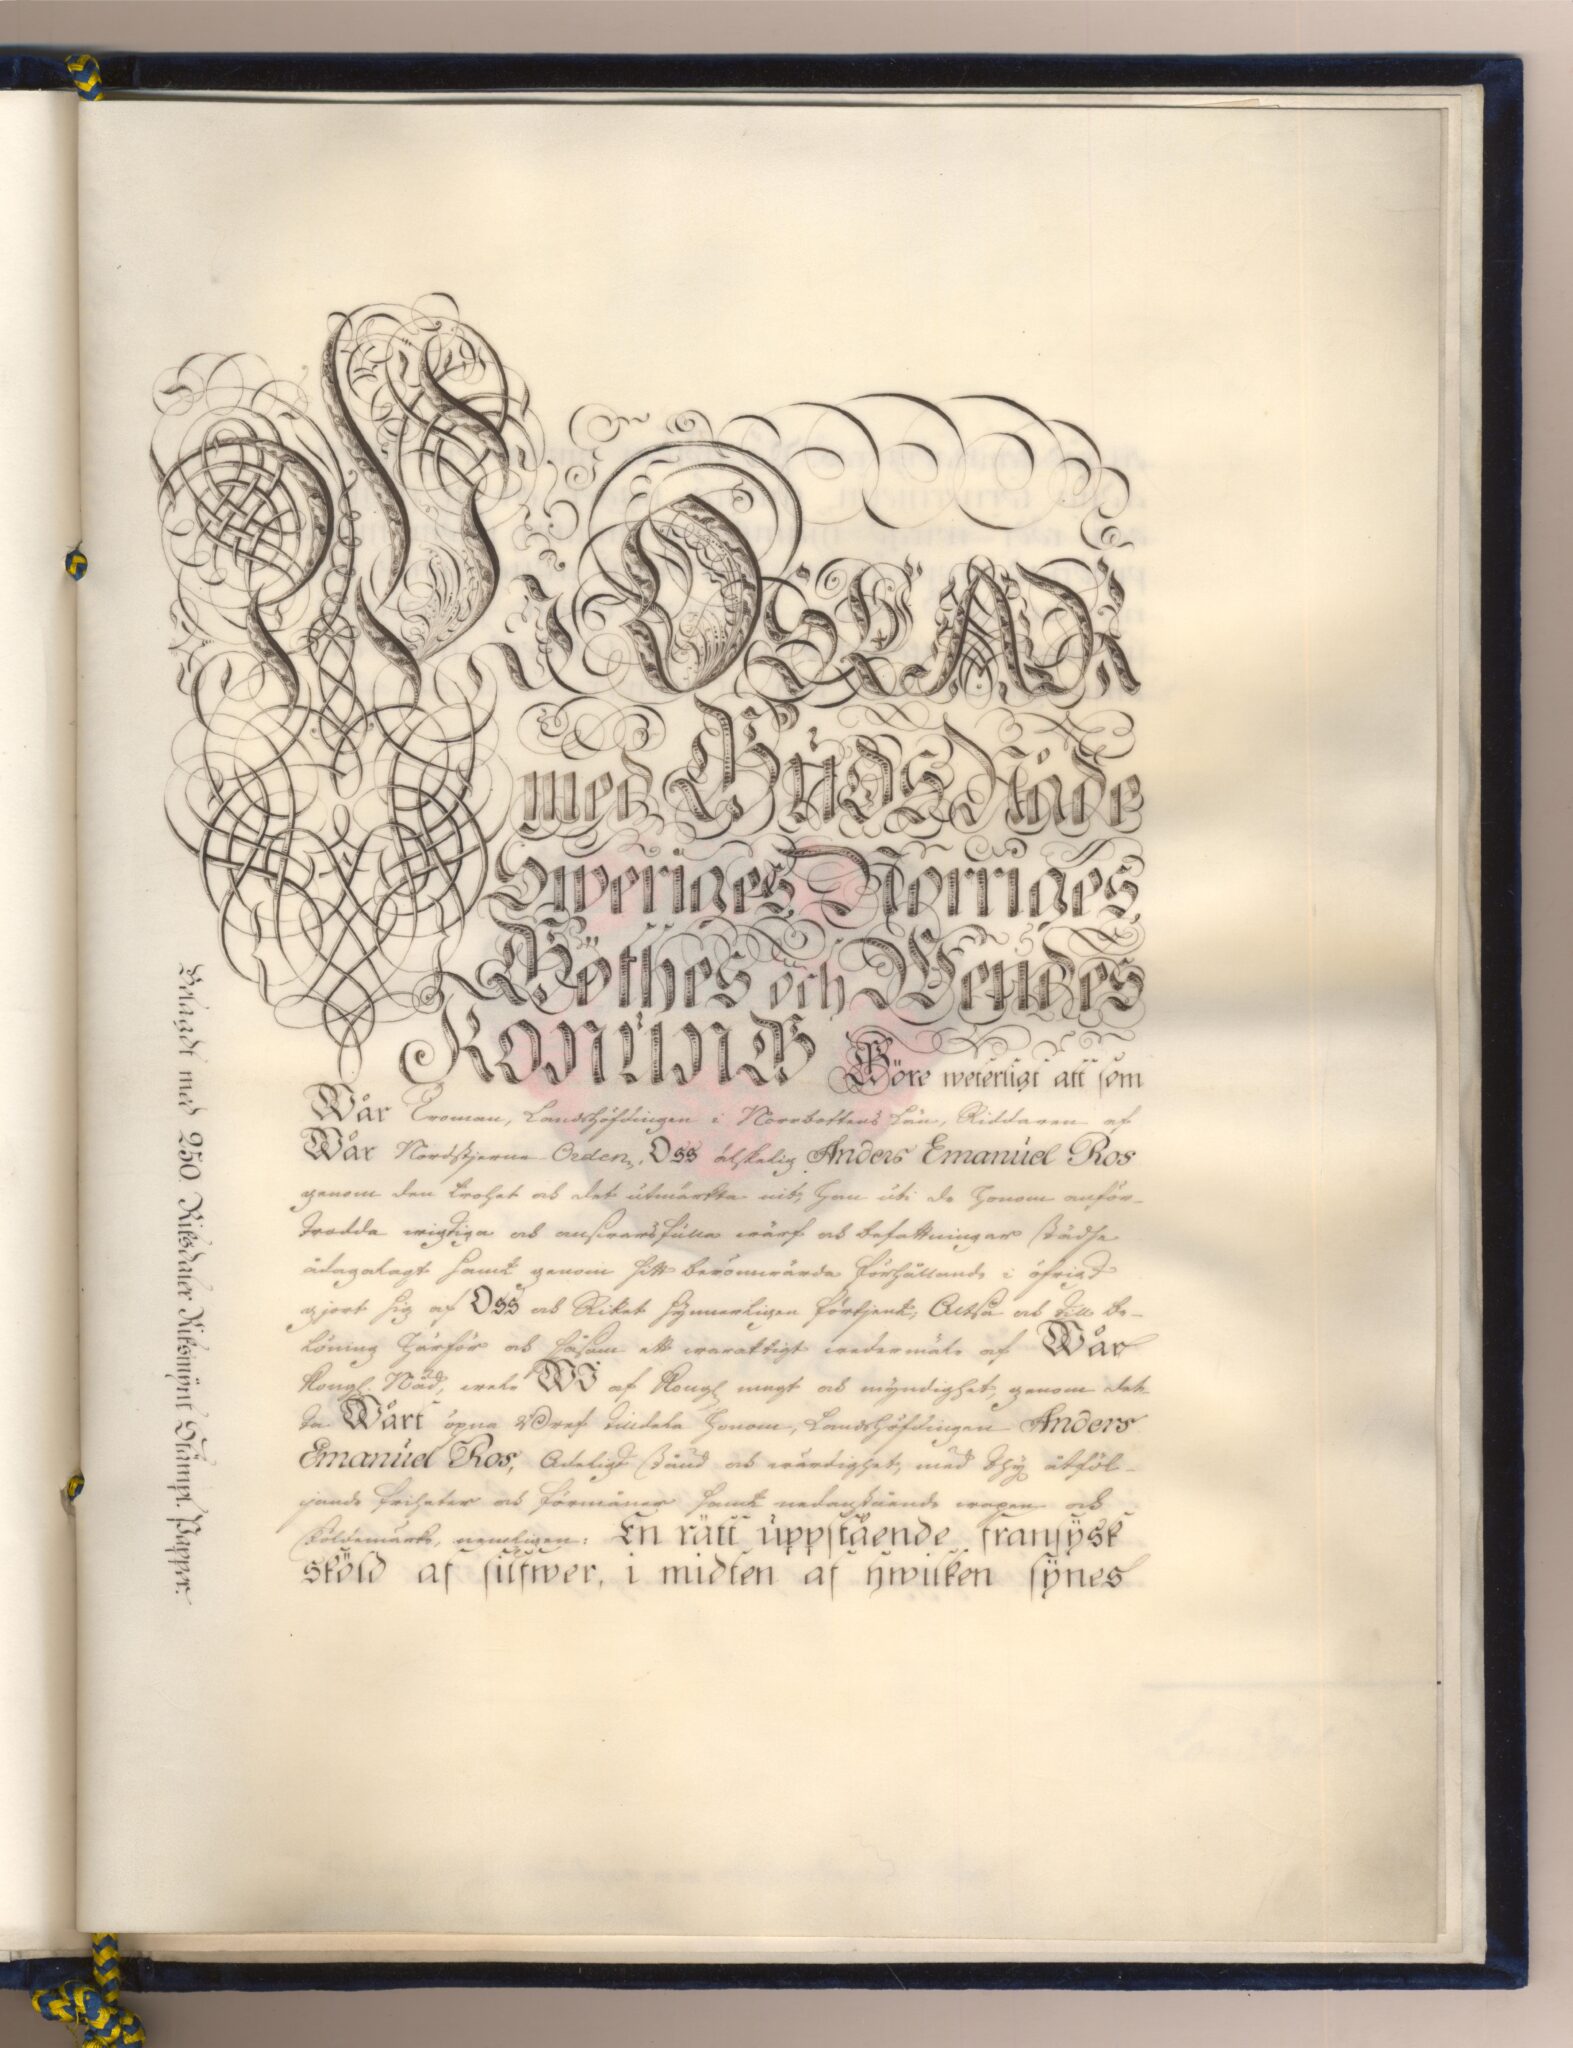 Wi OSCAR
med Guds Nåde
Sweriges, Norriges,
Göthes och Wendes
Konung Göre weterligt att som
Wår Troman, Landshöfdingen i Norrbottens Län, Riddaren af
Wår Nordstjerne Orden, Oss älskelig Anders Emanuel Ros
genom den trohet och det utmärkta nit, han uti de honom anför-
trodda wigtiga och answarsfulla wärf och befattningar städse
ådagalagt samt genom sitt berömwärda förhållande i öfrigt
gjort sig af Oss och Riket synnerligen förtjent; Altså och till be-
löning härför och såsom ett waraktigt wedermäle af Wår
Kongl. Nåd, wele Wi af Kongl. magt och myndighet, genom det-
ta Wårt öpna Bref tilldela honom, Landshöfdingen Anders
Emanuel Ros, Adeligt stånd och wärdighet, med thy åtföl-
jande friheter och förmåner samt nedanstående wapen och
sköldemärke, nemligen: En rätt uppstående fransysk
sköld af silfwer, i midten af hwilken synes
Belagdt med 250. Riksdaler Riksmynt Stämpl. Papper.